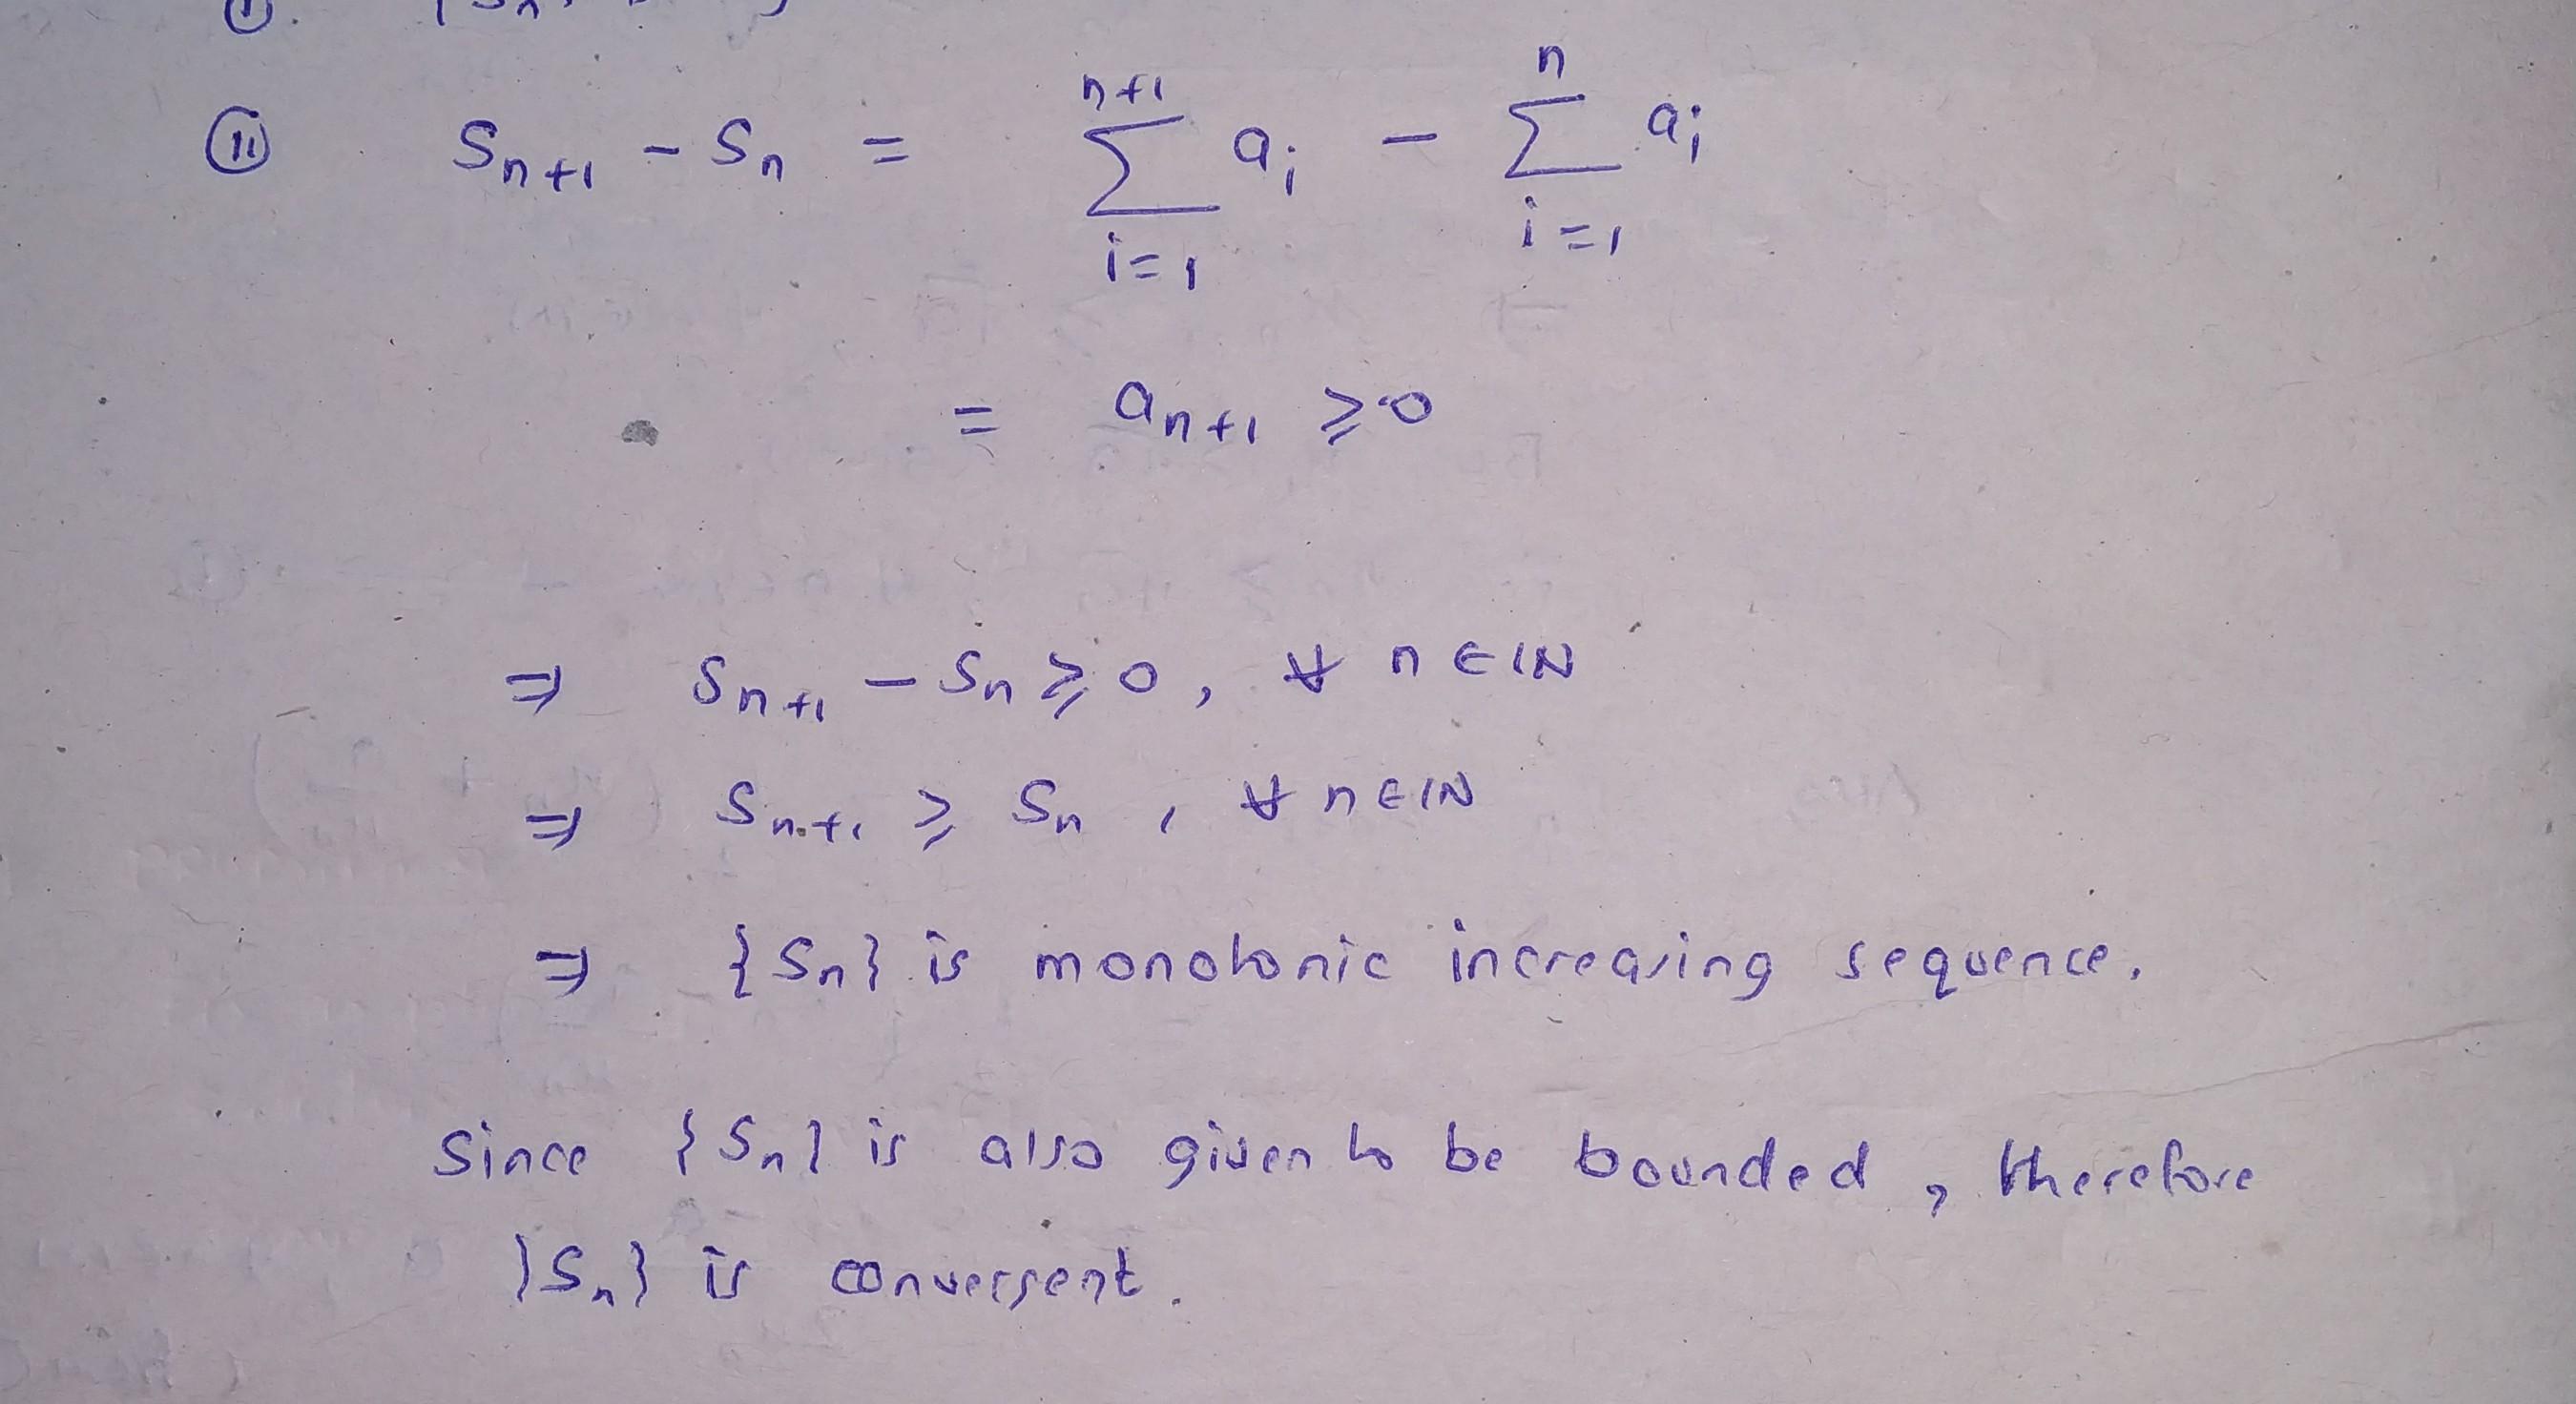 (ii) S_{n+1} - S_n = \sum_{i=1}^{n+1} a_i - \sum_{i=1}^{n} a_i
= a_{n+1} ≥ 0
⇒ S_{n+1} - S_n ≥ 0, ∀ n ∈ ℕ
⇒ S_{n+1} ≥ S_n, ∀ n ∈ ℕ
⇒ {S_n} is monotonic increasing sequence.
Since {S_n} is also given to be bounded, therefore
{S_n} is convergent.